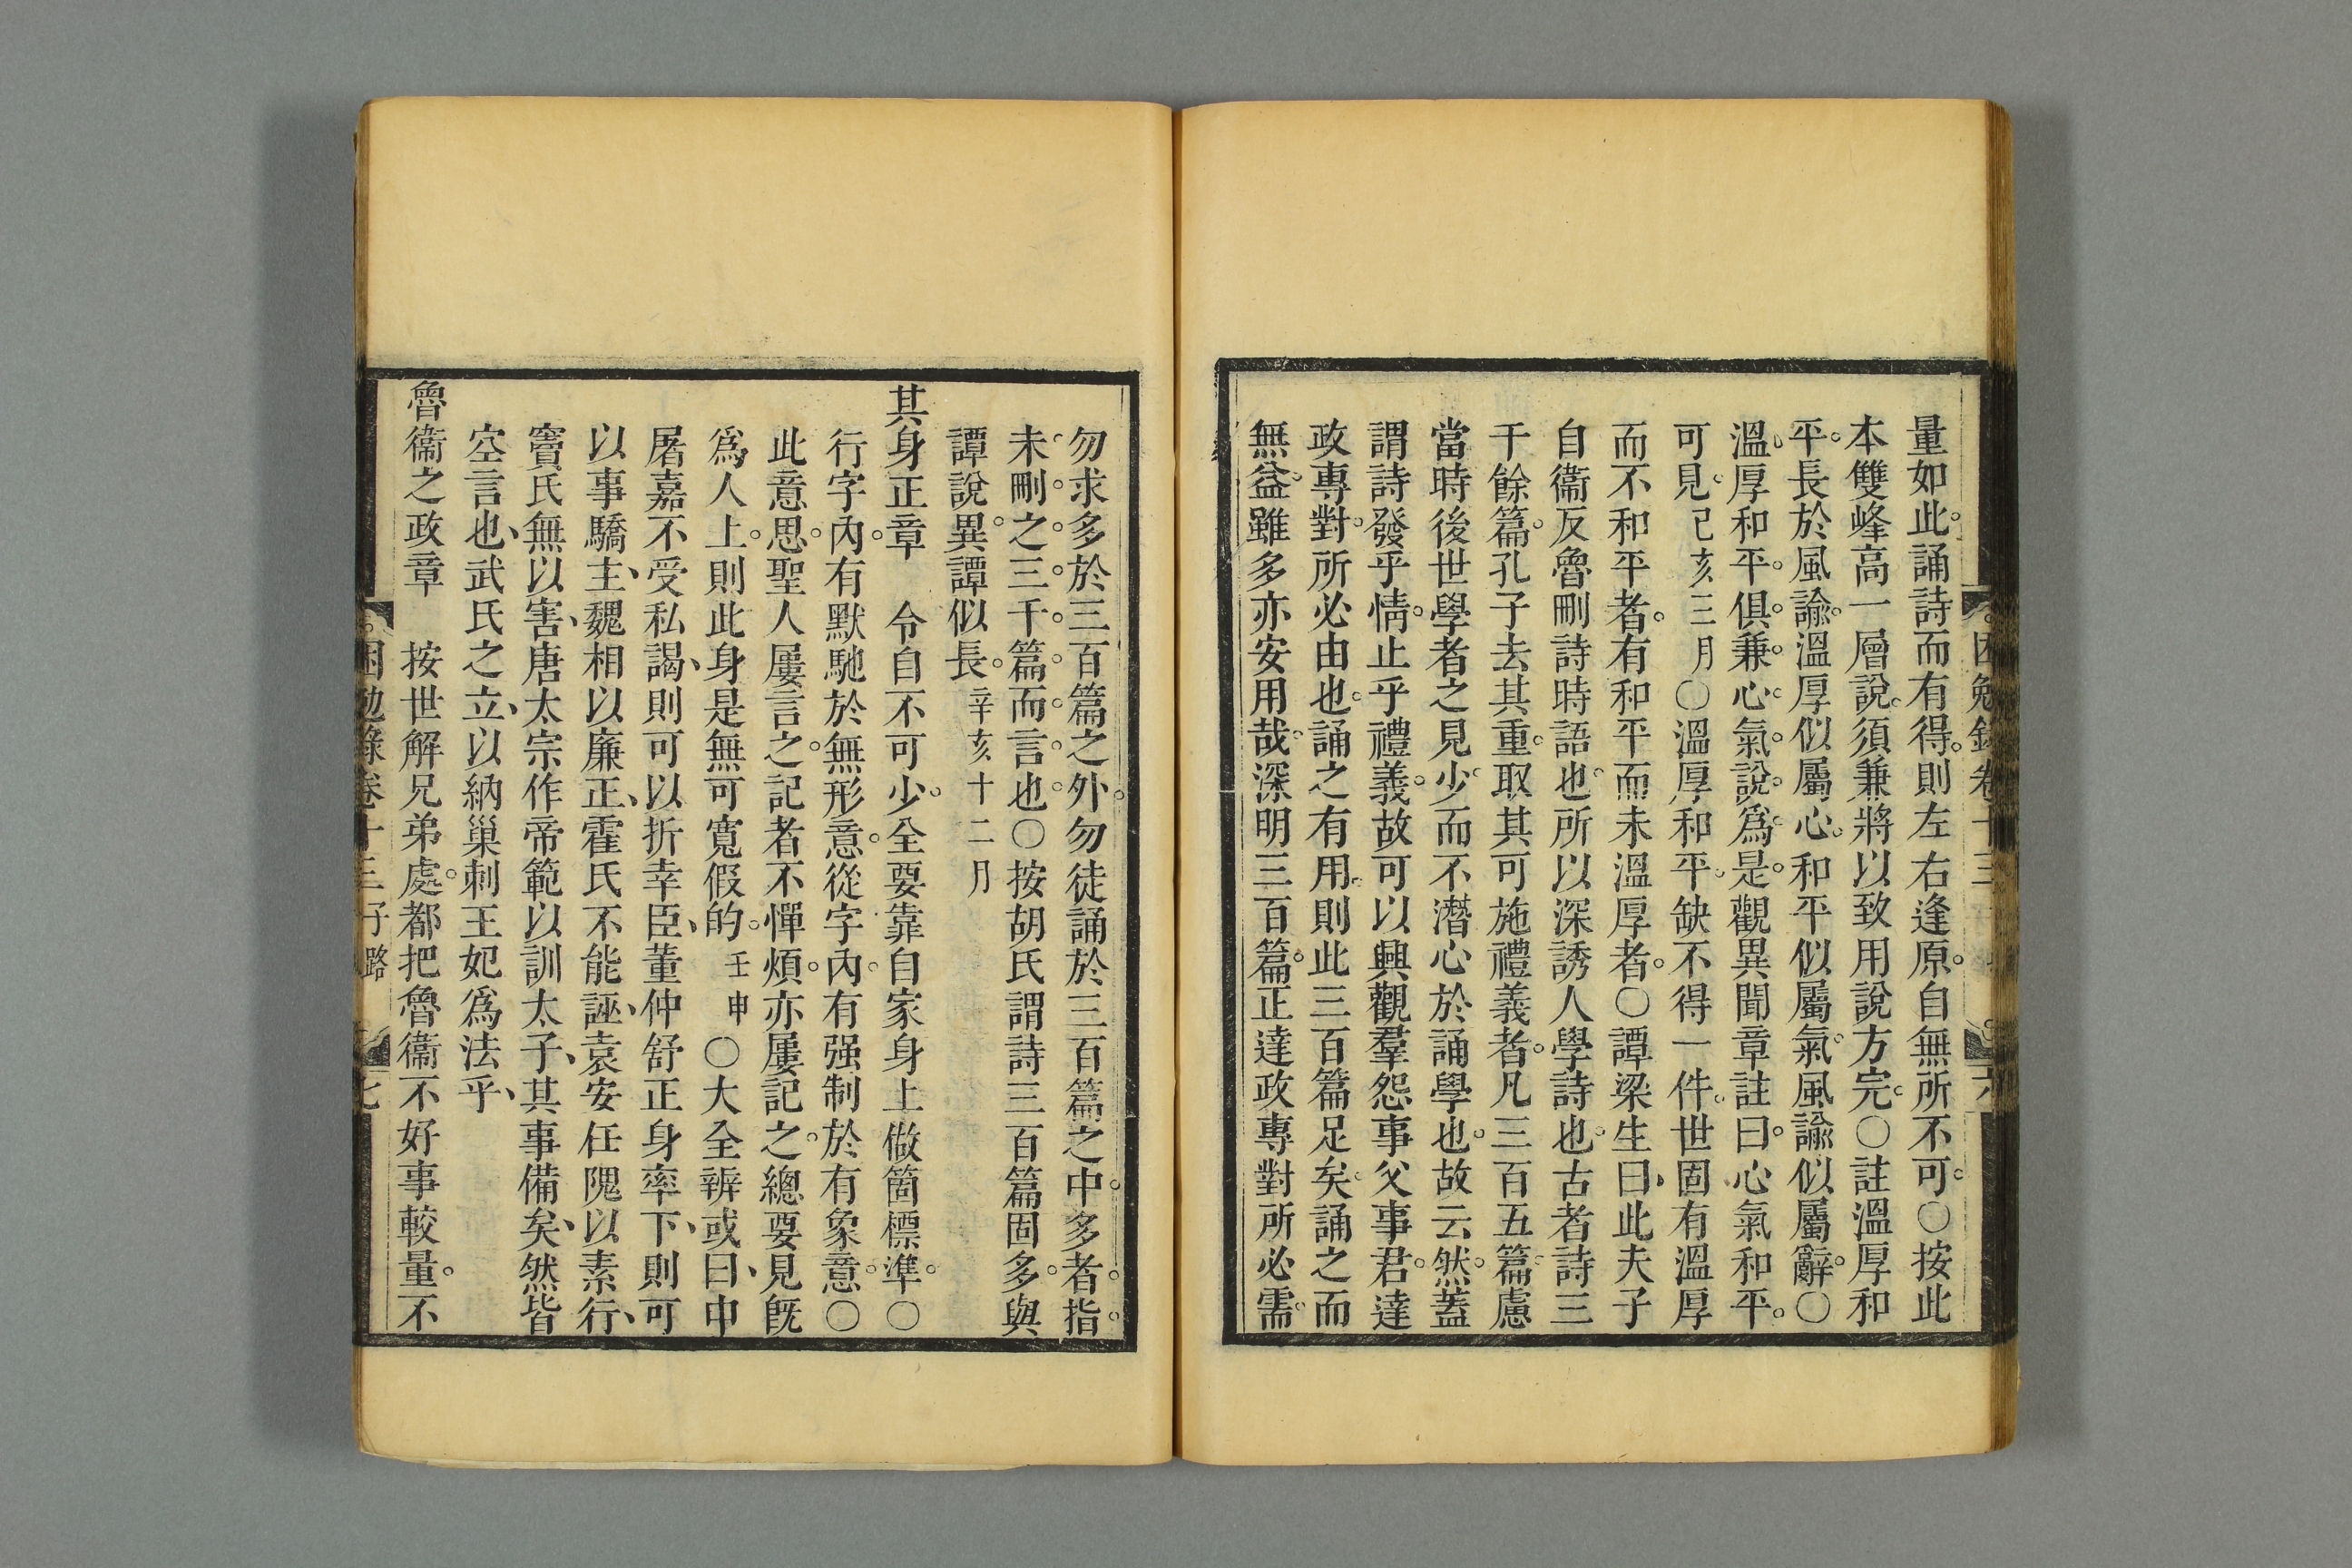 困勉錄卷十三
六
量如此誦詩而有得則左右逢原自無所不可○按此
本雙峰高一層說須兼將以致用說方完○註溫厚和
平長於風諭溫厚似屬心和平似屬氣風諭似屬辭○
溫厚和平俱兼心氣說爲是觀異聞章註曰心氣和平
可見己亥三月○溫厚和平缺不得一件世固有溫厚
而不和平者有和平而未溫厚者○譚梁生曰此夫子
自衞反魯刪詩時語也所以深誘人學詩也古者詩三
千餘篇孔子去其重取其可施禮義者凡三百五篇慮
當時後世學者之見少而不潛心於誦學也故云然蓋
謂詩發乎情止乎禮義故可以興觀羣怨事父事君達
政專對所必由也誦之有用則此三百篇足矣誦之而
無益雖多亦安用哉深明三百篇正達政專對所必需
勿求多於三百篇之外勿徒誦於三百篇之中多者指
未刪之三千篇而言也○按胡氏謂詩三百篇固多與
譚說異譚似長辛亥十二月
其身正章　令自不可少全要靠自家身上做箇標準○
行字內有默馳於無形意從字內有强制於有象意○
此意思聖人屢言之記者不憚煩亦屢記之總要見旣
爲人上則此身是無可寬假的壬申○大全辨或曰申
屠嘉不受私謁則可以折幸臣董仲舒正身率下則可
以事驕主魏相以廉正霍氏不能誣袁安任隗以素行
竇氏無以害唐太宗作帝範以訓太子其事備矣然皆
空言也武氏之立以納巢刺王妃爲法乎
魯衞之政章　按世解兄弟處都把魯衞不好事較量不
困勉錄卷十三　子路
七